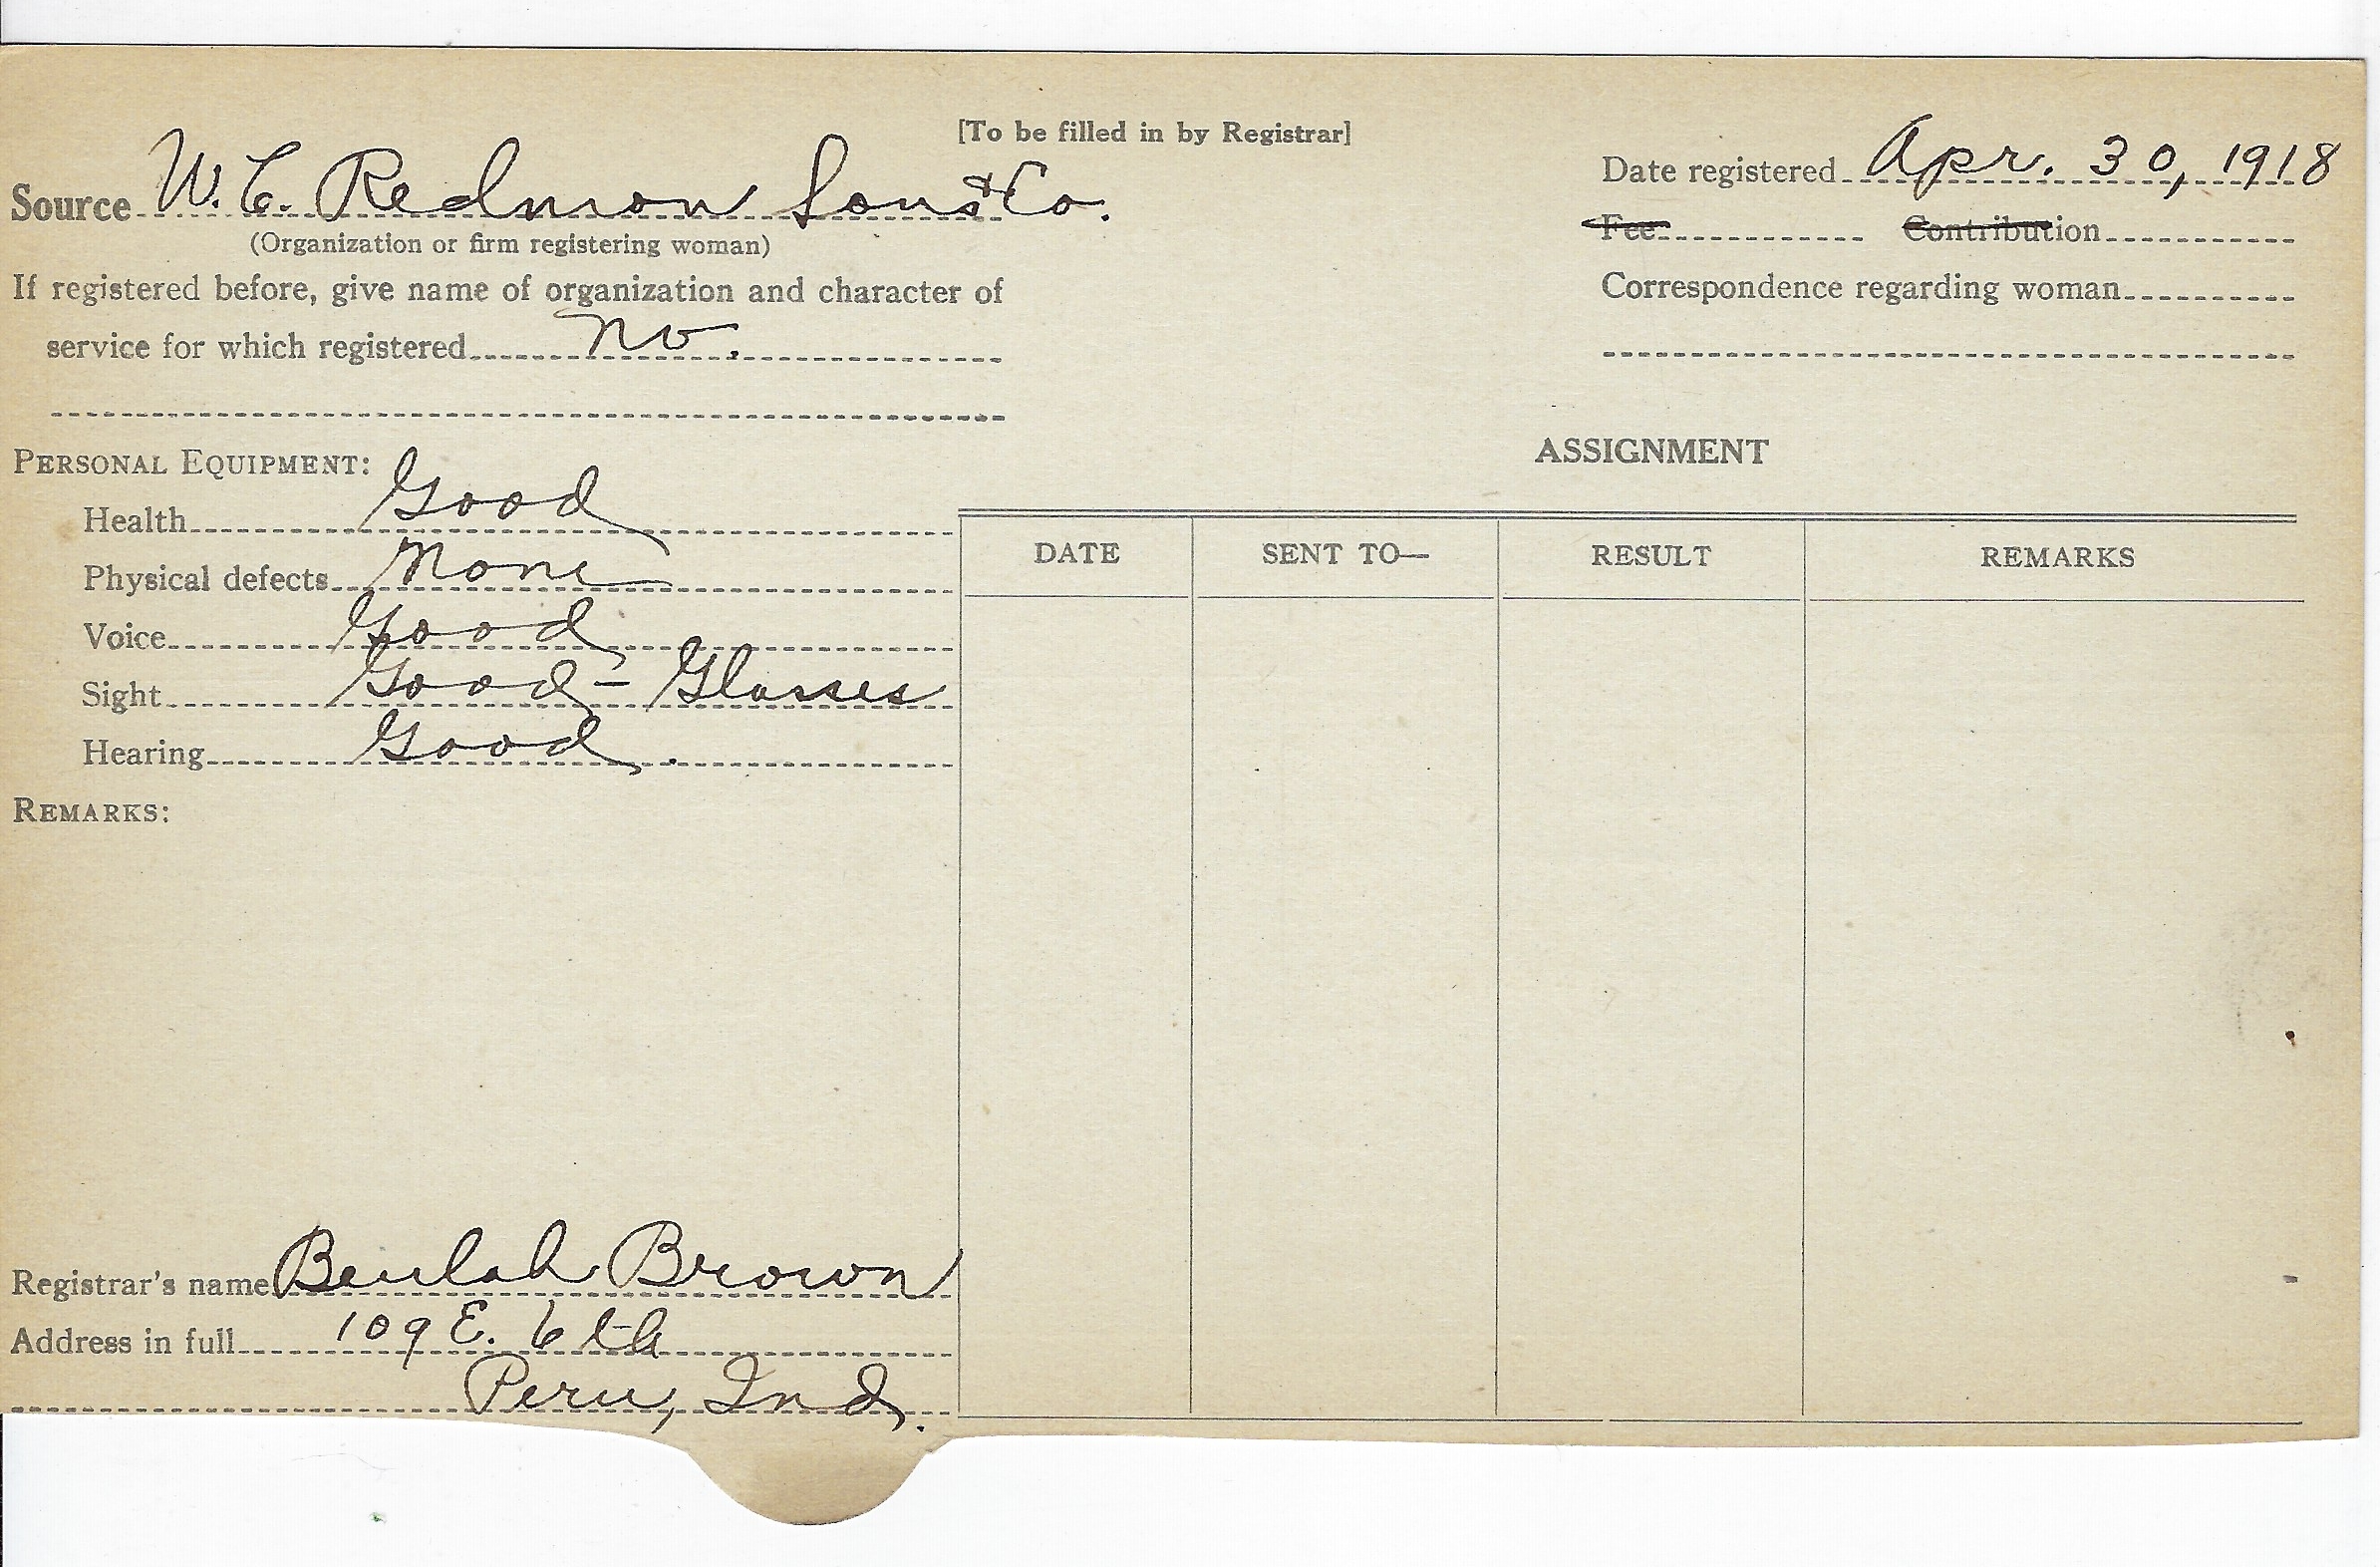 [To be filled in by Registrar]
Source W. C. Redmon Sons & Co.
(Organization or firm registering woman)
If registered before, give name of organization and character of
service for which registered No.
Date registered Apr. 30, 1918
Fee Contribution
Correspondence regarding woman
PERSONAL EQUIPMENT:
Health Good
Physical defects None
Voice Good
Sight Good - Glasses
Hearing Good.
REMARKS:
Registrar's name Beulah Brown
Address in full 109 E. 6th
Peru, Ind.
ASSIGNMENT
DATE SENT TO— RESULT REMARKS